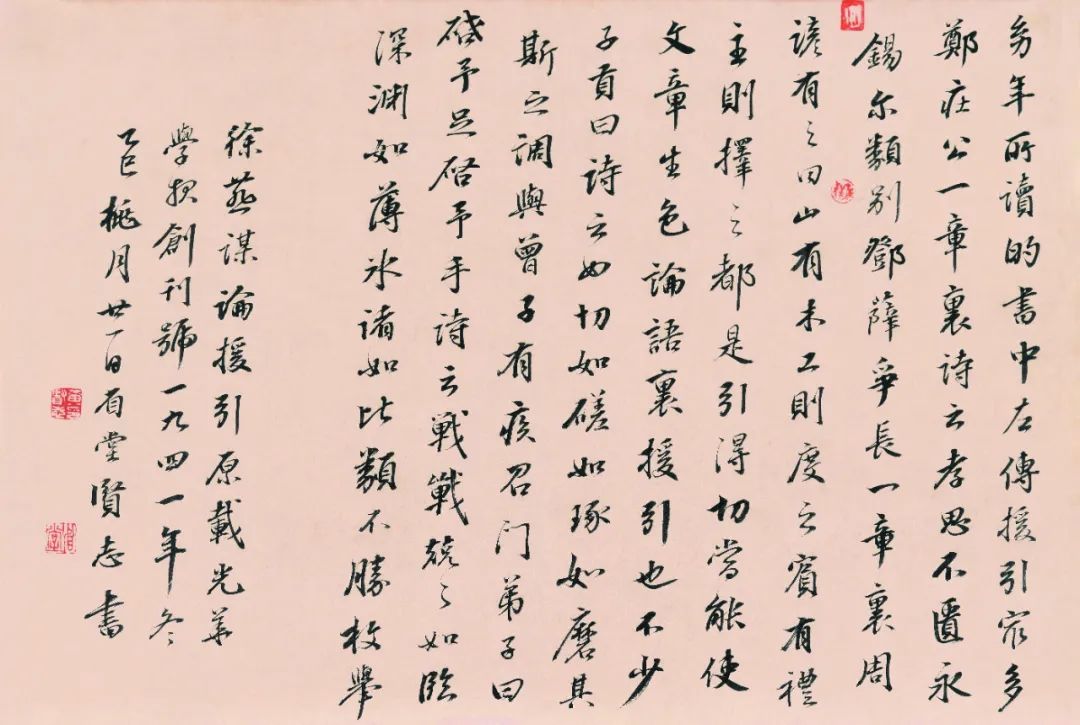 多年所讀的書中左傳援引最多
鄭莊公一章裏詩云孝思不匱永
錫尔類別鄧薛爭長一章裏周
諺有之曰山有木工則度之賓有禮
主則擇之都是引得切當能使
文章生色論語裏援引也不少
子貢曰詩云如切如磋如琢如磨其
斯之謂與曾子有疾召门弟子曰
啓予足啓予手詩云戰戰兢之如臨
深渊如薄冰諸如此類不勝枚舉
徐燕謀論援引原載光華
學報創刊號一九四一年冬
乙巳桃月廿一日有堂賢志書